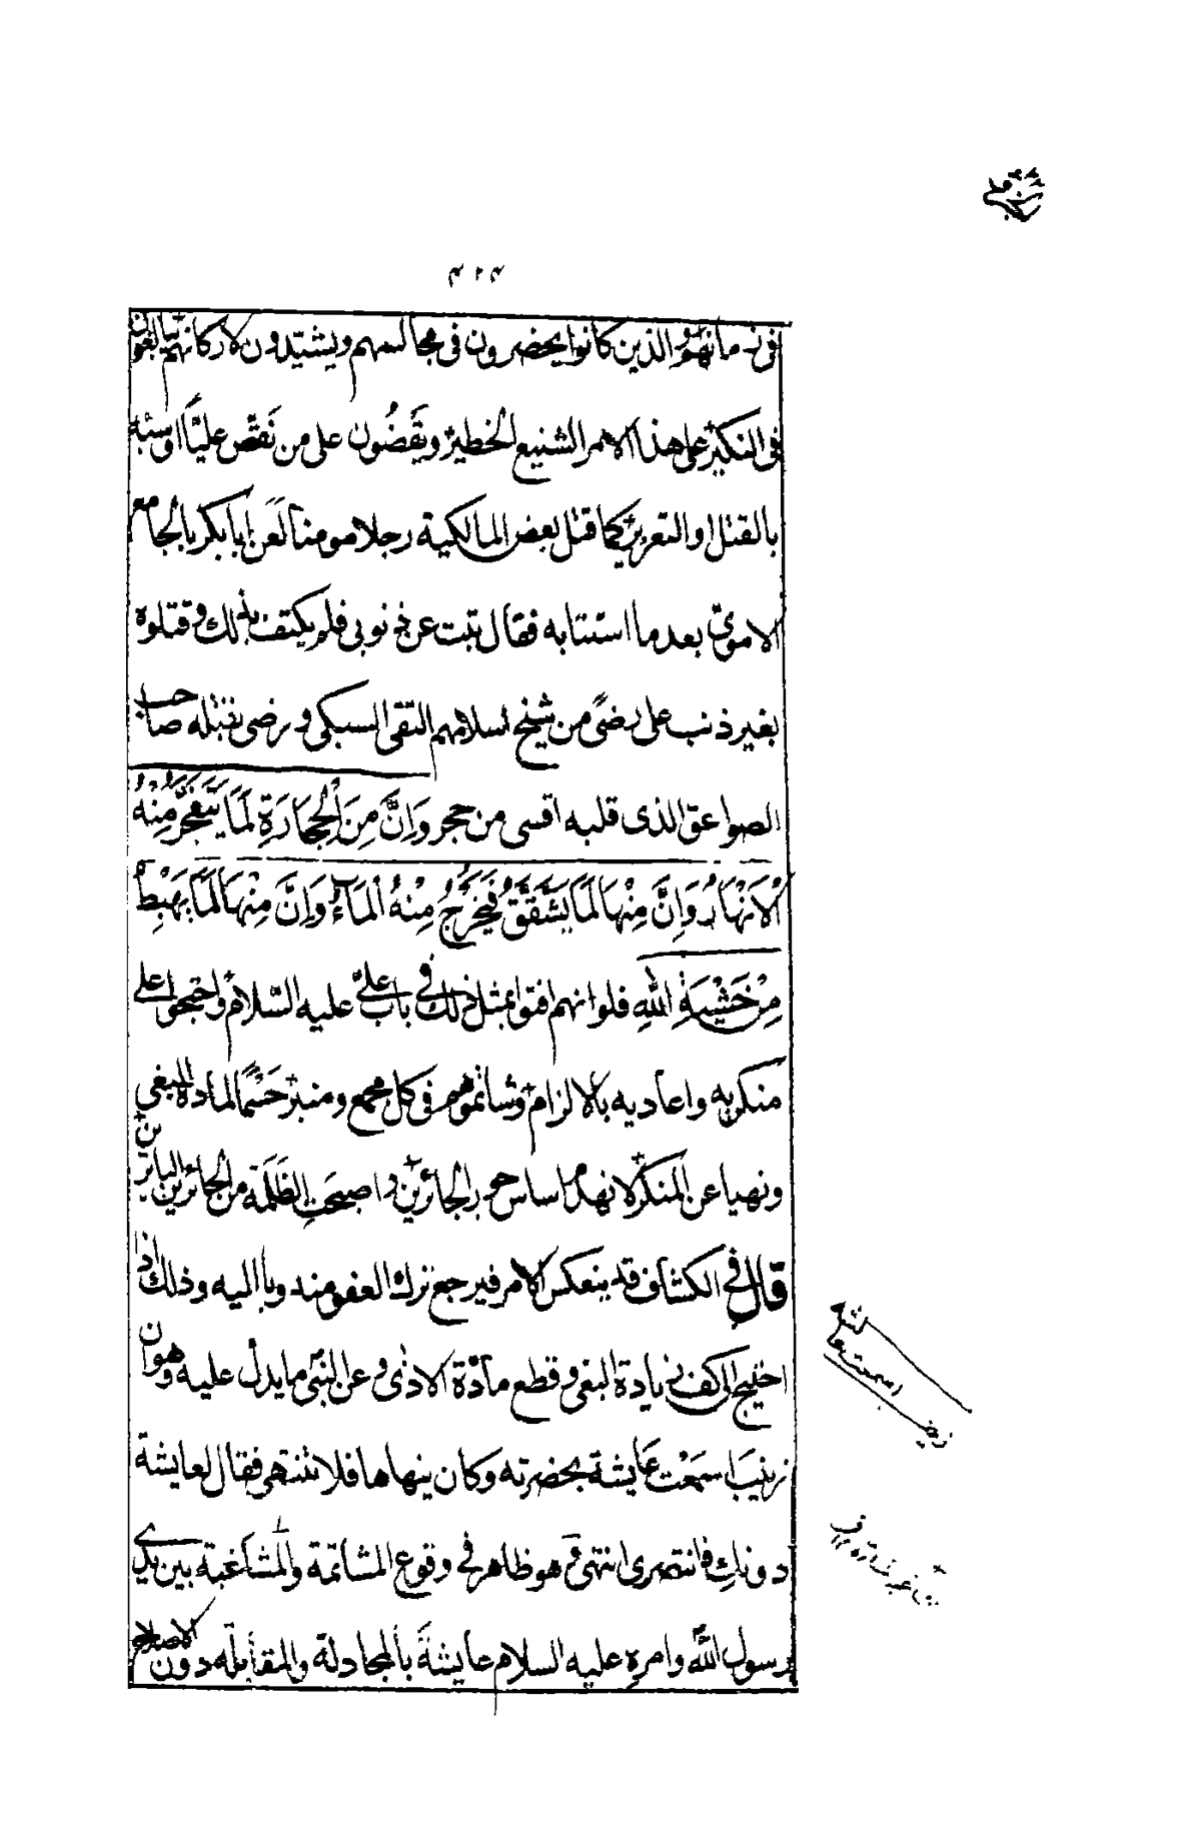 ۴۲۴
في زمانهم والذين كانوا يحضرون في مجالسهم ويشيّدون لاركانهم يبالغون
في النكير على هذا الامر الشنيع الخطير ويقضُون على من نقّص عليًّا او سبّه
بالقتل او التعزير كما قتل بعض المالكية رجلا مومنا لَعَن ابا بكر بالجامع
الاموي بعد ما استتابه فقال تبت عن ذنوبي فلم يكتف بذلك وقتلوه
بغير ذنب على رضًى من شيخ اسلامهم التقي السبكي ورضي بقتله صاحب
الصواعق الذي قلبه اقسى من حجر وَاِنَّ مِنَ الْحِجَارَةِ لَمَا يَتَفَجَّرُ مِنْهُ
الْاَنْهَارُ وَاِنَّ مِنْهَا لَمَا يَشَّقَّقُ فَيَخْرُجُ مِنْهُ الْمَآءُ وَاِنَّ مِنْهَا لَمَا يَهْبِطُ
مِنْ خَشْيَةِ اللهِ فلو انهم افتوا بمثل ذلك في باب عليّ عليه السّلام واحتجوا على
منكريه واعاديه بالالزام وشاتموهم في كل مجمع ومنبر حَسْمًا لمادة البغي
ونهيا عن المنكر لانهدم اساس جور الجائرين واصبحت الظَلَمَة من الجائزين البائرين
قال في الكشاف قد ينعكس الامر فيرجع ترك العفو مندوبا اليه وذلك اذا
احتيج الى كف زيادة البغي وقطع مآدّة الاذى وعن النبيّ ما يدل عليه وهو ان
زينبَ اسمَعْت عَايشة بحضرته وكان ينهاها فلا تنتهي فقال لعايشة
دونكِ فانتصري انتهى وهو ظاهر في وقوع المشاتمة والمشاغبة بين يدي
رسول اللّه وامرِه عليه السلام عايشةَ بالمجادلة والمقابلة دون الاصلاح